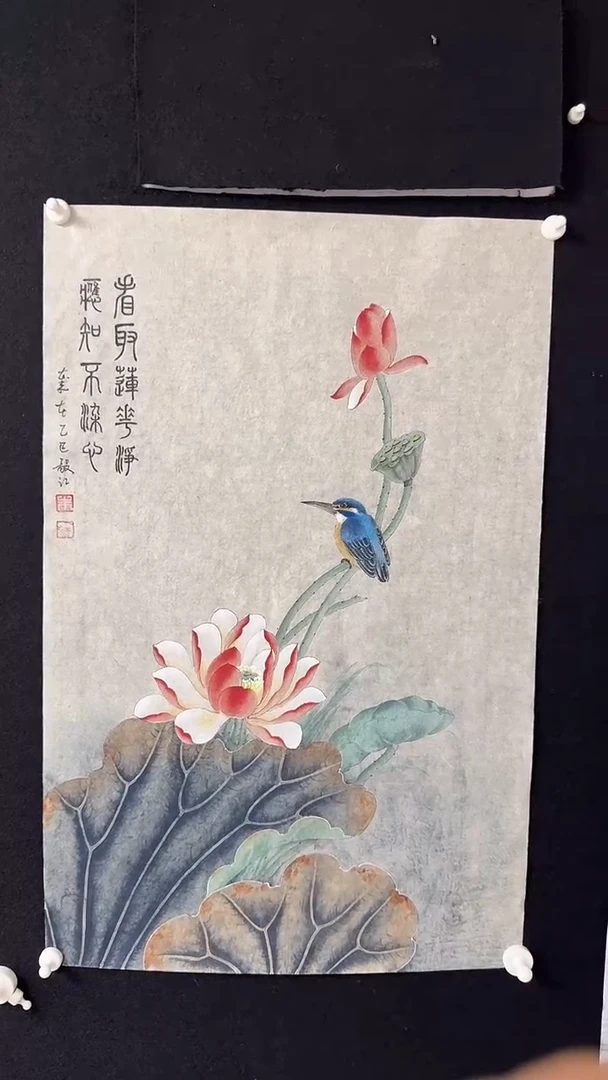 看取蓮花淨
應知不染心
歲在乙巳